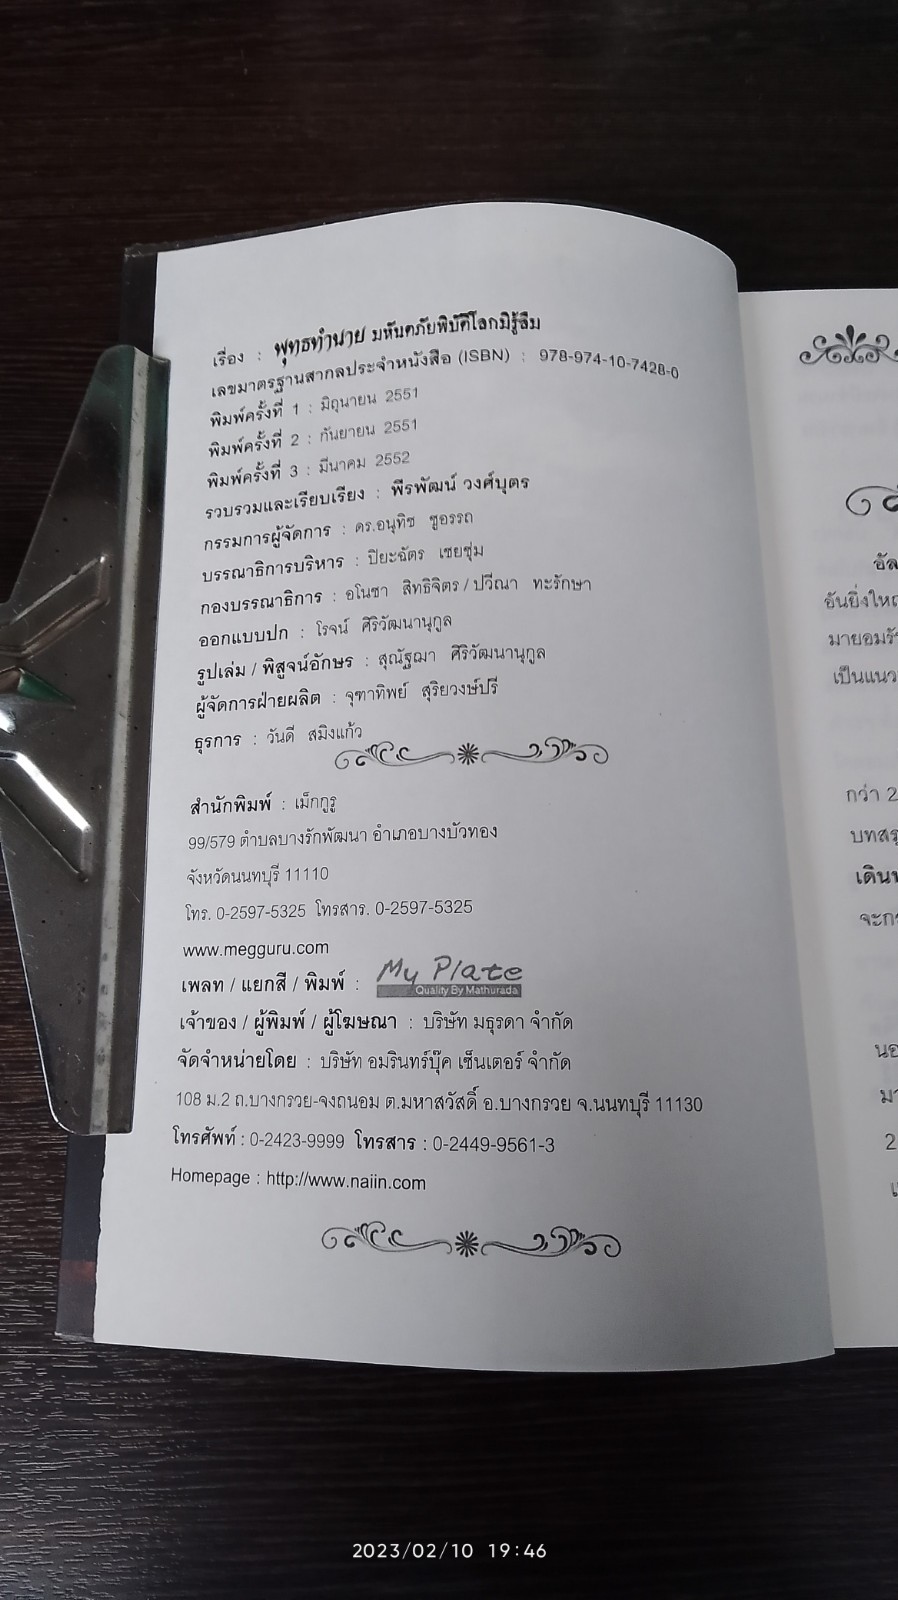 เรื่อง : พุทธทำนาย มหันตภัยพิบัติโลกมิรู้ลืม
เลขมาตรฐานสากลประจำหนังสือ (ISBN) : 978-974-10-7428-0
พิมพ์ครั้งที่ 1 : มิถุนายน 2551
พิมพ์ครั้งที่ 2 : กันยายน 2551
พิมพ์ครั้งที่ 3 : มีนาคม 2552
รวบรวมและเรียบเรียง : พีรพัฒน์ วงศ์บุตร
กรรมการผู้จัดการ : ดร.อนุทิช ชูอรรถ
บรรณาธิการบริหาร : ปิยะฉัตร เชยชุ่ม
กองบรรณาธิการ : อโนชา สิทธิจิตร / ปวีณา ทะรักษา
ออกแบบปก : โรจน์ ศิริวัฒนานุกูล
รูปเล่ม / พิสูจน์อักษร : สุณัฐฌา ศิริวัฒนานุกูล
ผู้จัดการฝ่ายผลิต : จุฑาทิพย์ สุริยวงษ์ปรี
ธุรการ : วันดี สมิงแก้ว
สำนักพิมพ์ : เม็กกูรู
99/579 ตำบลบางรักพัฒนา อำเภอบางบัวทอง
จังหวัดนนทบุรี 11110
โทร. 0-2597-5325 โทรสาร. 0-2597-5325
www.megguru.com
เพลท / แยกสี / พิมพ์ : My Plate
Quality By Mathurada
เจ้าของ / ผู้พิมพ์ / ผู้โฆษณา : บริษัท มธุรดา จำกัด
จัดจำหน่ายโดย : บริษัท อมรินทร์บุ๊ค เซ็นเตอร์ จำกัด
108 ม.2 ถ.บางกรวย-จงถนอม ต.มหาสวัสดิ์ อ.บางกรวย จ.นนทบุรี 11130
โทรศัพท์ : 0-2423-9999 โทรสาร : 0-2449-9561-3
Homepage : http://www.naiin.com
อันยิ่งใหญ
มายอมรั
เป็นแนว
กว่า 2
บทสรุ
เดิน
จะก
2
2023/02/10 19:46